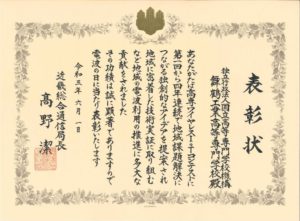 表彰状
独立行政法人国立高等専門学校機構
舞鶴工業高等専門学校殿
あなたがたは高専ワイヤレスIoTコンテストに
第一回から四年連続で地域課題解決に
つながる独創的なアイデアを提案され
地域に密着した技術実証に取り組む
など地域の電波利用の推進に多大な
貢献をされました
その功績は誠に顕著でありますので
電波の日に当たり表彰いたします
令和三年六月一日
近畿総合通信局長
高野潔